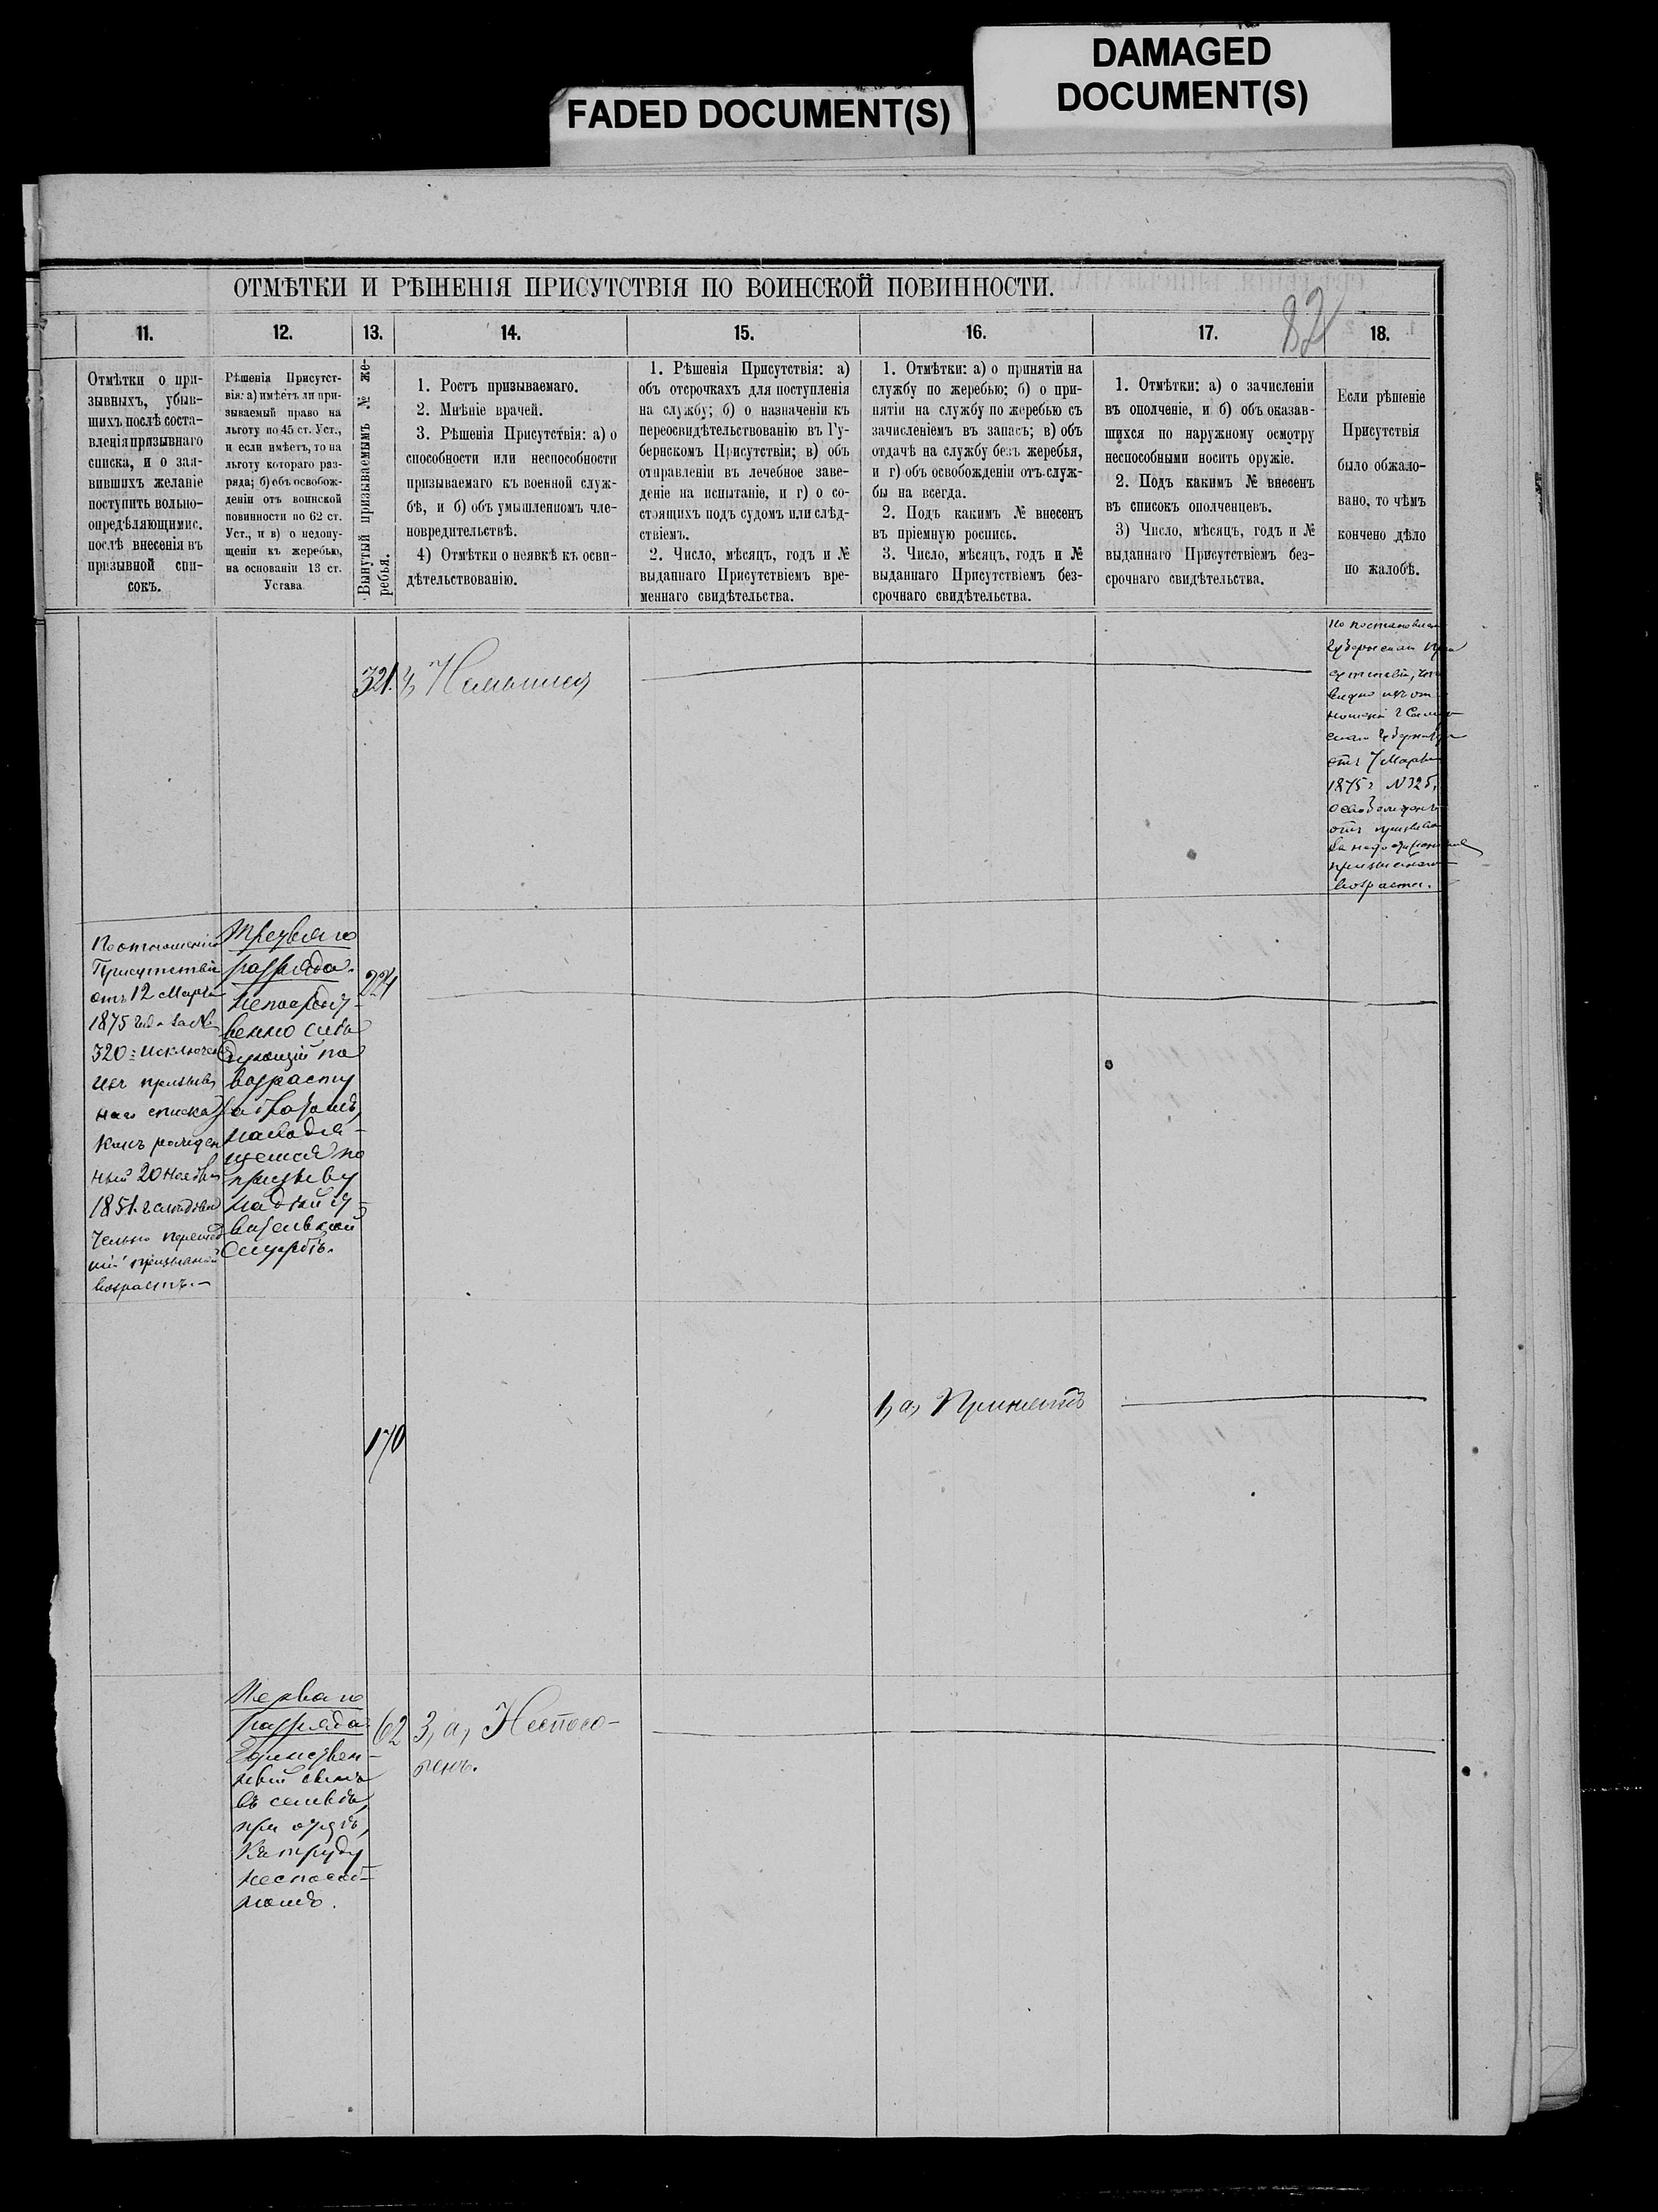 FADED DOCUMENT(S)
DAMAGED
DOCUMENT(S)
ОТМѢТКИ И РѢШЕНІЯ ПРИСУТСТВІЯ ПО ВОИНСКОЙ ПОВИННОСТИ.
82
11.
12.
13.
14.
15.
16.
17.
18.
Отмѣтки о при-
зывныхъ, убыв-
шихъ послѣ соста-
вленія призывнаго
списка, и о зая-
вившихъ желаніе
поступить вольно-
опредѣляющимис.
послѣ внесенія въ
призывной спи-
сокъ.
Рѣшенія Присутст-
вія: а) имѣетъ ли при-
зываемый право на
льготу по 45 ст. Уст.,
и если имѣетъ, то на
льготу котораго раз-
ряда; б) объ освобож-
деніи отъ воинской
повинности по 62 ст.
Уст., и в) о недопу-
щеніи къ жеребью,
на основаніи 13 ст.
Устава
Вынутый призываемымъ № же-
ребья.
1. Ростъ призываемаго.
2. Мнѣніе врачей.
3. Рѣшенія Присутствія: а) о
способности или неспособности
призываемаго къ военной служ-
бѣ, и б) объ умышленномъ чле-
новредительствѣ.
4) Отмѣтки о неявкѣ къ осви-
дѣтельствованію.
1. Рѣшенія Присутствія: а)
объ отсрочкахъ для поступленія
на службу; б) о назначеніи къ
переосвидѣтельствованію въ Гу-
бернскомъ Присутствіи; в) объ
отправленіи въ лечебное заве-
деніе на испытаніе, и г) о со-
стоящихъ подъ судомъ или слѣд-
ствіемъ.
2. Число, мѣсяцъ, годъ и №
выданнаго Присутствіемъ вре-
меннаго свидѣтельства.
1. Отмѣтки: а) о принятіи на
службу по жеребью; б) о при-
нятіи на службу по жеребью съ
зачисленіемъ въ запасъ; в) объ
отдачѣ на службу безъ жеребья,
и г) объ освобожденіи отъ служ-
бы на всегда.
2. Подъ какимъ № внесенъ
въ пріемную роспись.
3. Число, мѣсяцъ, годъ и №
выданнаго Присутствіемъ без-
срочнаго свидѣтельства.
1. Отмѣтки: а) о зачисленіи
въ ополченіе, и б) объ оказав-
шихся по наружному осмотру
неспособными носить оружіе.
2. Подъ какимъ № внесенъ
въ списокъ ополченцевъ.
3) Число, мѣсяцъ, годъ и №
выданнаго Присутствіемъ без-
срочнаго свидѣтельства.
Если рѣшеніе
Присутствія
было обжало-
вано, то чѣмъ
кончено дѣло
по жалобѣ.
321. 4,
По
отъ 7 Марта
1875 г № 325,
отъ
призывнаго
возраста.
По отношенію
Присутствія
отъ 12 Марта
1875 года за №
320 исключенъ
изъ призыв
наго списка
какъ рожден
ный 20 Ноября
1851 г
возрастъ.—
Третьяго
разряда.
Непосред-
венно слѣ
дующій по
возрасту
за братомъ,
находя-
щемся по
призыву
на дѣйст-
вительной
службѣ.
224
170
1, а, Принятъ
Перваго
разряда.
Единствен-
ный сынъ
въ семьѣ,
при отцѣ,
къ труду
неспособ-
номъ.
62
3, а, Неспосо-
бенъ.